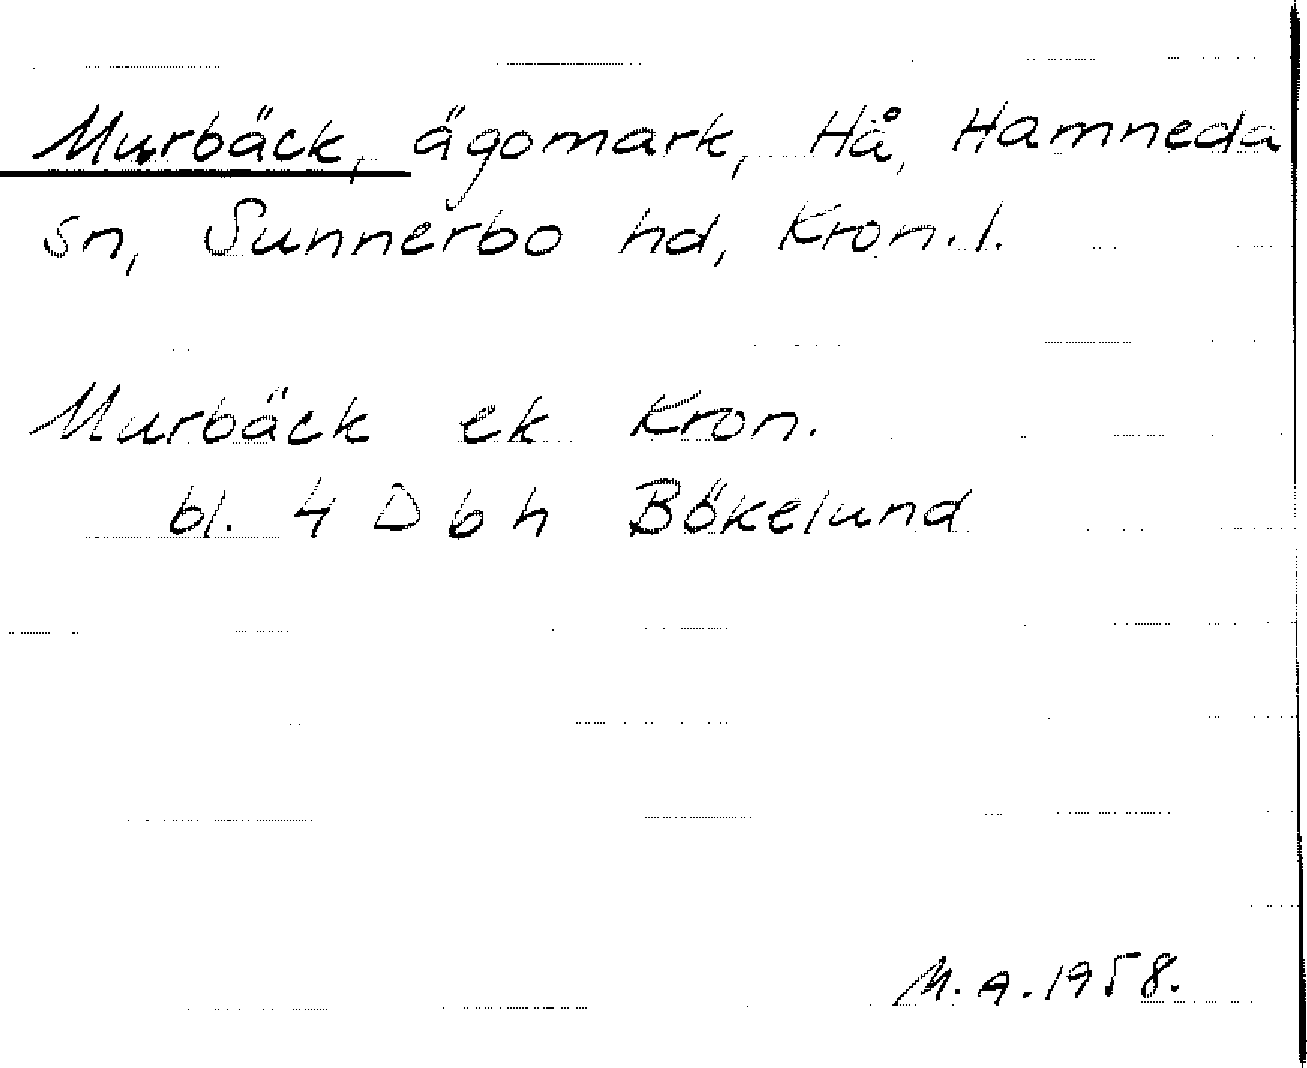 Murbäck, ägomark, Hå, Hamneda
sn, Sunnerbo hd, Kron.l.
Murbäck ek Kron.
bl. 4 D b h Bökelund
M.A.1958.